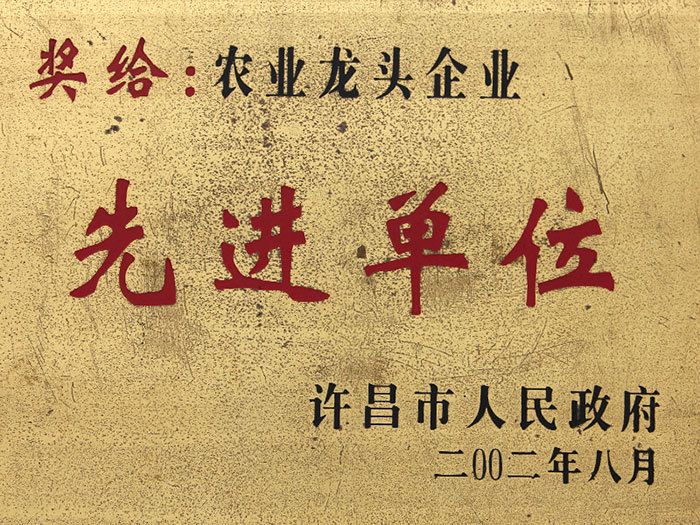 奖给:农业龙头企业
先进单位
许昌市人民政府
二00二年八月